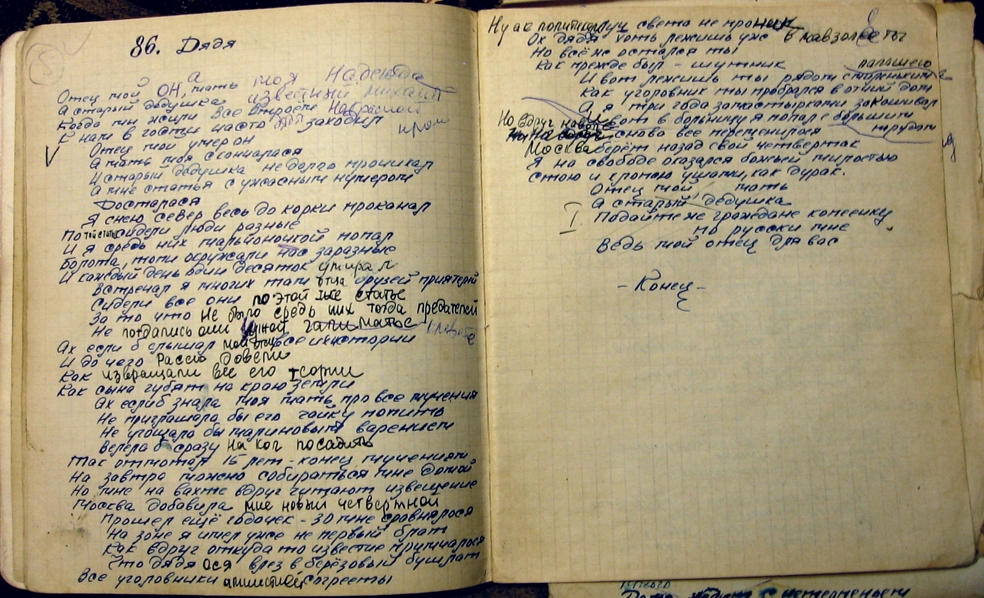 86. Дядя
Отец мой ОН, а мать моя Надежда
А старый дедушка известный Михаил
Когда мы жили все втроём на Красной
К нам в гости часто заходил
Отец мой умер он
А мать моя скончалася
И старый дедушка не долго прочихал
А мне статья с ужасным нумером
Досталася
Я снею север весь до корки проканал
По той статье сидели люди разные
И я средь них мальчоночкой попал
Болота, топи окружали нас заразные
И каждый день один десяток умирал
Встречал я многих там отца друзей приятелей
Сидели все они по этой же статье
За то что не было средь них тогда предателей
Не поддались они чужой клевете
Ах если б слышал мой отец все их истории
И до чего Рассею довели
Как извращали все его теории
Как сына губят на краю земли
Ах если б знала моя мать про все мучения
Не приглашала бы его чайку попить
Не угощала бы малиновым варением
Велела б сразу на кол посадить
Так оттопал 15 лет - конец мучениям
На завтра можно собираться мне домой
Но мне на вахте вдруг читают извещение
Москва добавила мне новый четвертной
Прошел ещё годочек - 30 мне сровнялося
На зоне я имел уже не первый блат
Как вдруг откуда то известие примчалося
Что дядя ося врез в берёзовый бушлат
Все уголовники амнистией согреты
Ну а к политикам луч света не проник
Ох дядя хоть лежишь уже в мавзолее ты
Но всё же остался ты
Как прежде был - шутник
И вот лежишь ты рядом с стареньким папашею
Как уголовник ты пробрался в отчий дом
А я три года запастырками закашивал
Но вдруг вот в больницу я попал с большим трудом
снова все переменилося
Москва берёт назад свой четвертак
Я на свободе оказался божьей милостью
Стою и хлопаю ушами, как дурак.
Отец мой мать
А старый дедушка
Подайте же граждане копеечку
по русски мне
Ведь мой отец для вас
- Конец -